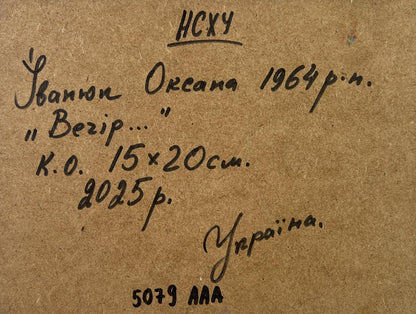 НСХУ
Іванюк Оксана 1964 р.н.
„Вечір..."
к.о. 15×20см.
2025р.
Україна.
5079 ААА